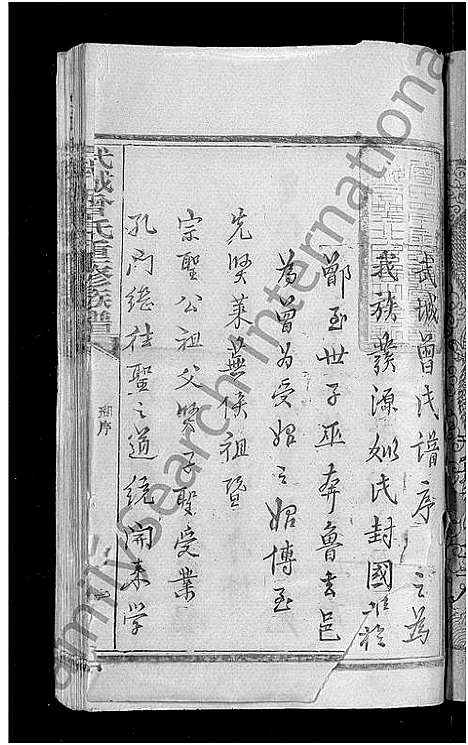 武城曾氏譜序
之為
我族發源姒氏封國於
鄫至世子巫奔魯去邑
為曾為受姓之始傳至
先賢萊蕪侯祖暨
宗聖公祖父賢子聖受業
孔門繼往聖之道統開來學
武城曾氏重修族譜
序
FamilySearch International